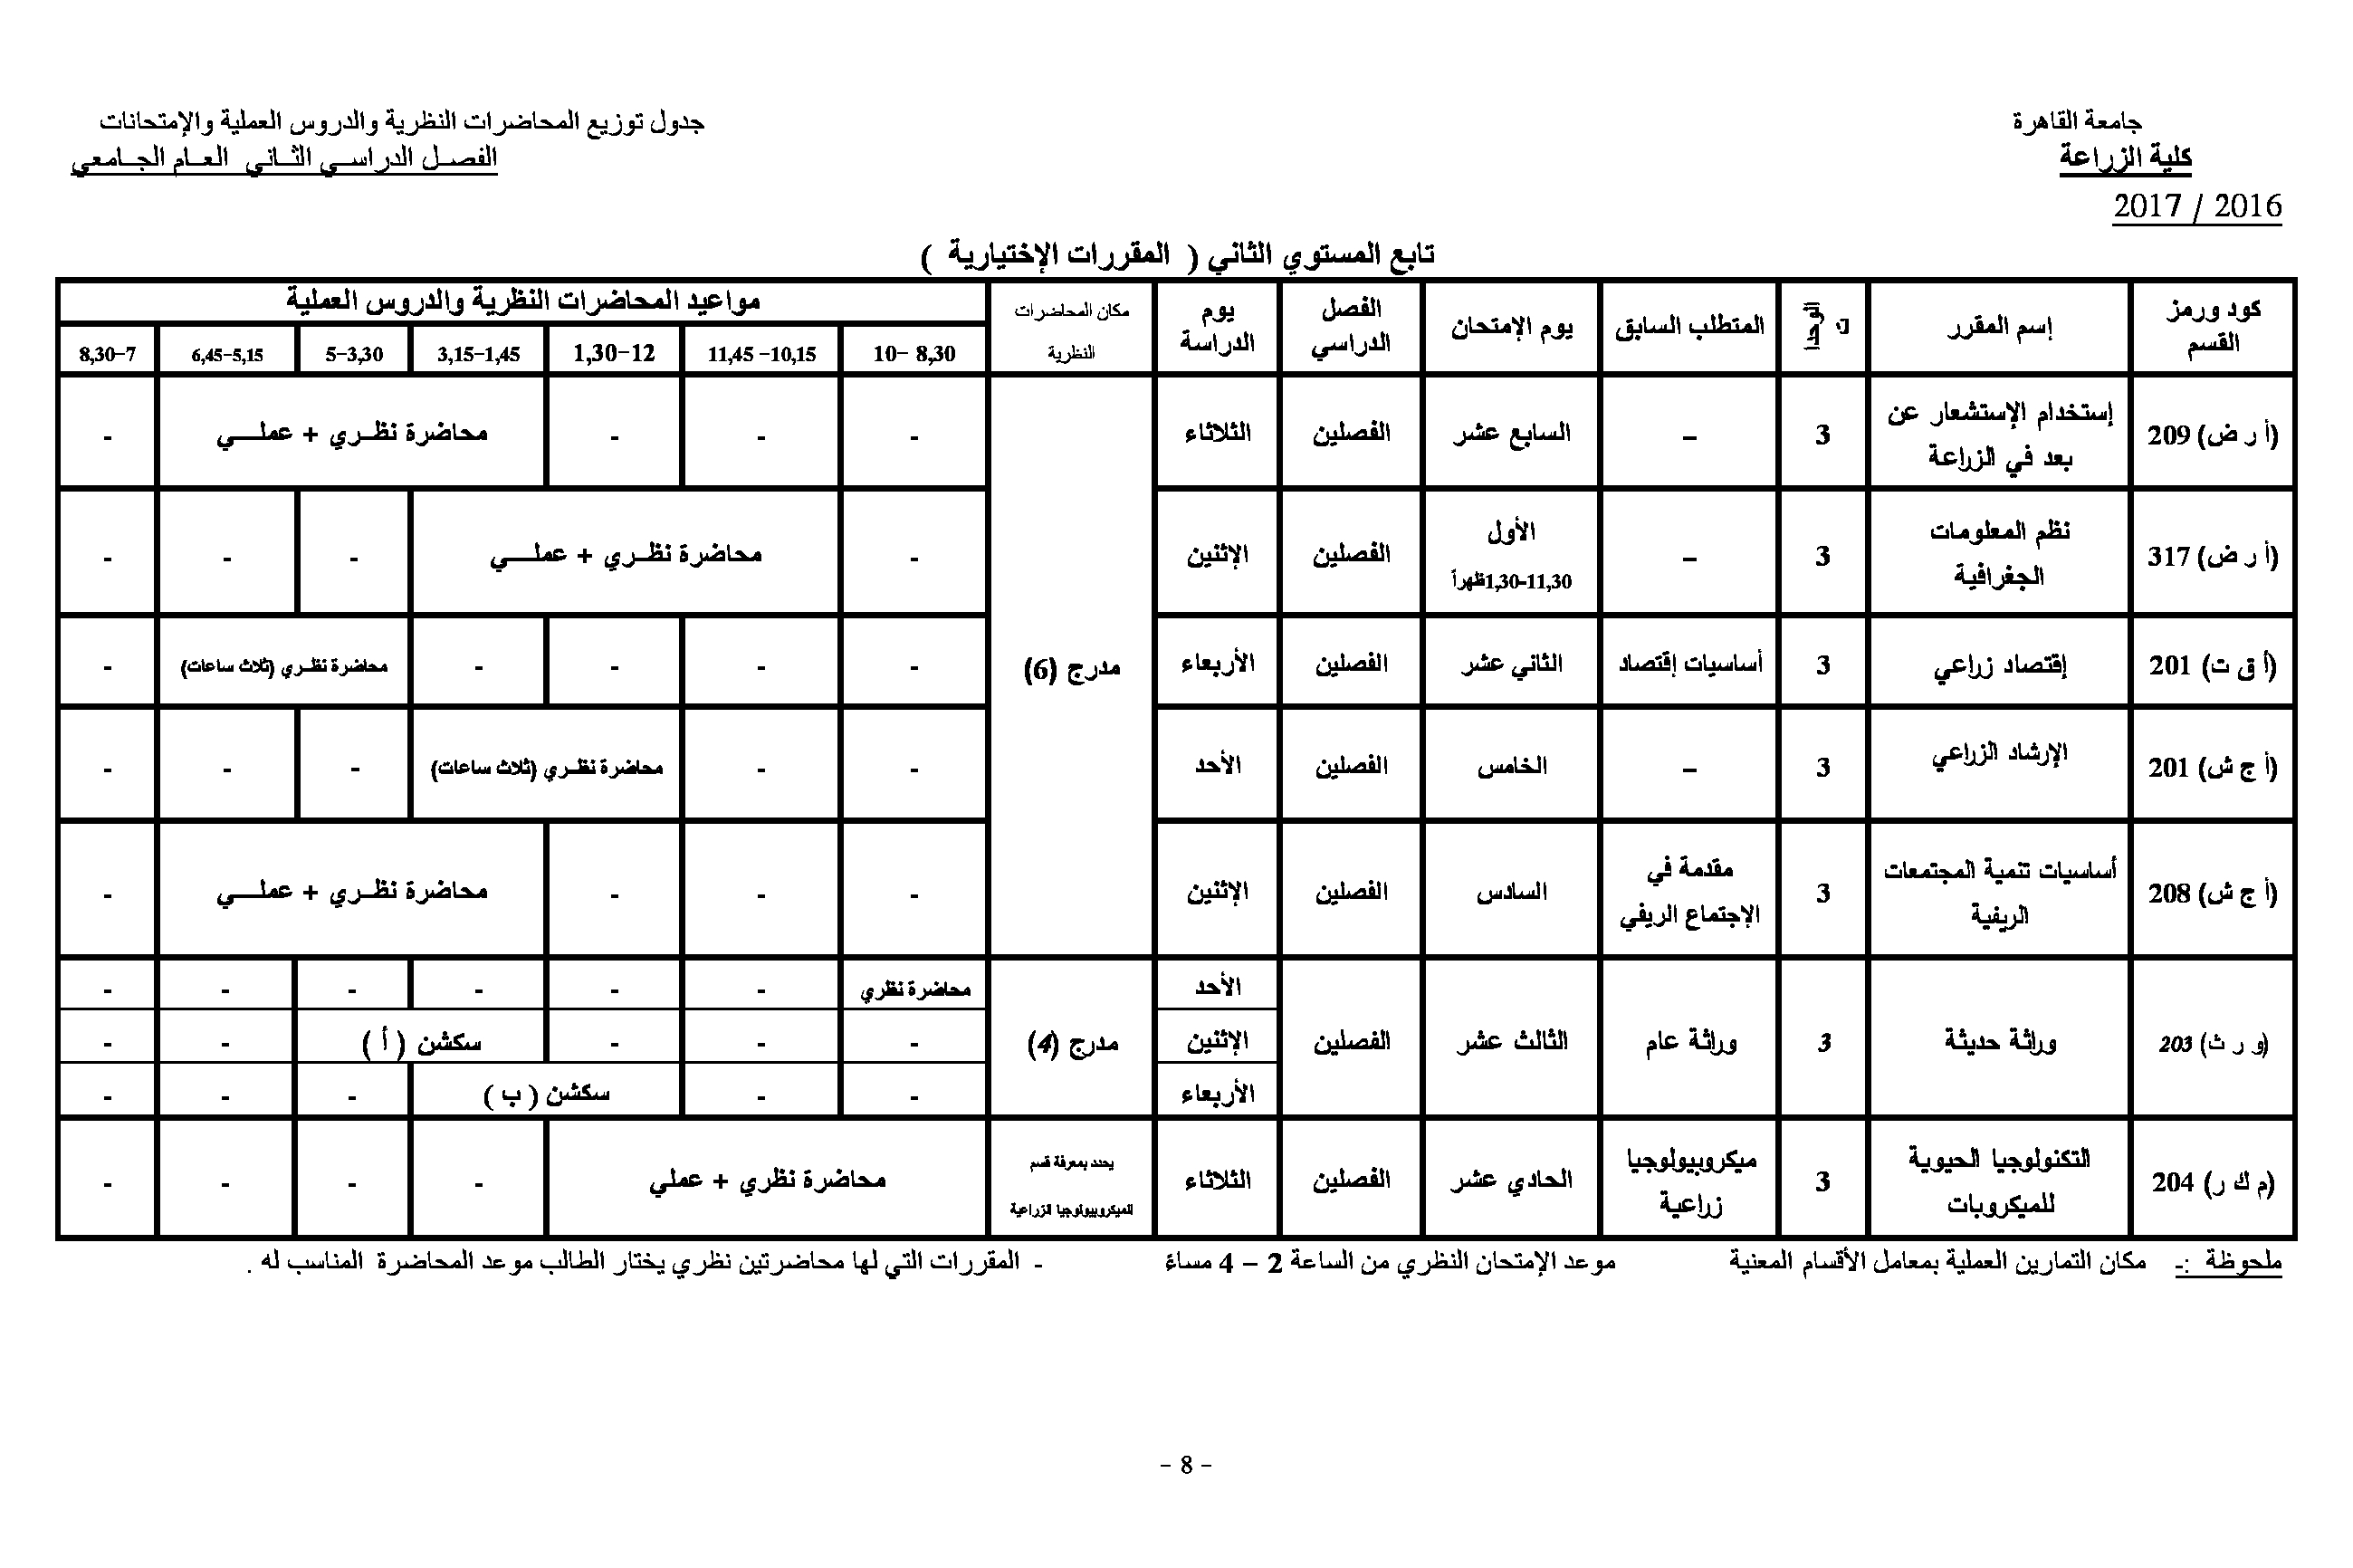 جامعة القاهرة
جدول توزيع المحاضرات النظرية والدروس العملية والإمتحانات
كلية الزراعة
الفصل الدراسي الثاني العام الجامعي
2016 / 2017
تابع المستوي الثاني ( المقررات الإختيارية )
كود ورمز القسم | إسم المقرر | الوحدات | المتطلب السابق | يوم الإمتحان | الفصل الدراسي | يوم الدراسة | مكان المحاضرات النظرية | مواعيد المحاضرات النظرية والدروس العملية
8,30 -10 | 10,15- 11,45 | 12-1,30 | 1,45-3,15 | 3,30-5 | 5,15-6,45 | 7-8,30
(أ ر ض) 209 | إستخدام الإستشعار عن بعد في الزراعة | 3 | – | السابع عشر | الفصلين | الثلاثاء | مدرج (6) | - | - | - | محاضرة نظري + عملي | -
(أ ر ض) 317 | نظم المعلومات الجغرافية | 3 | – | الأول 11,30-1,30ظهراً | الفصلين | الإثنين | - | محاضرة نظري + عملي | - | - | -
(أ ق ت) 201 | إقتصاد زراعي | 3 | أساسيات إقتصاد | الثاني عشر | الفصلين | الأربعاء | - | - | - | - | محاضرة نظري (ثلاث ساعات) | -
(أ ج ش) 201 | الإرشاد الزراعي | 3 | – | الخامس | الفصلين | الأحد | - | - | محاضرة نظري (ثلاث ساعات) | - | - | -
(أ ج ش) 208 | أساسيات تنمية المجتمعات الريفية | 3 | مقدمة في الإجتماع الريفي | السادس | الفصلين | الإثنين | - | - | - | محاضرة نظري + عملي | -
(و ر ث) 203 | وراثة حديثة | 3 | وراثة عام | الثالث عشر | الفصلين | الأحد | مدرج (4) | محاضرة نظري | - | - | - | - | - | -
الإثنين | - | - | - | سكشن ( أ ) | - | -
الأربعاء | - | - | سكشن ( ب ) | - | - | -
(م ك ر) 204 | التكنولوجيا الحيوية للميكروبات | 3 | ميكروبيولوجيا زراعية | الحادي عشر | الفصلين | الثلاثاء | يحدد بمعرفة قسم الميكروبيولوجيا الزراعية | محاضرة نظري + عملي | - | - | - | -
ملحوظة :- مكان التمارين العملية بمعامل الأقسام المعنية موعد الإمتحان النظري من الساعة 2 – 4 مساءً - المقررات التي لها محاضرتين نظري يختار الطالب موعد المحاضرة المناسب له .
- 8 -